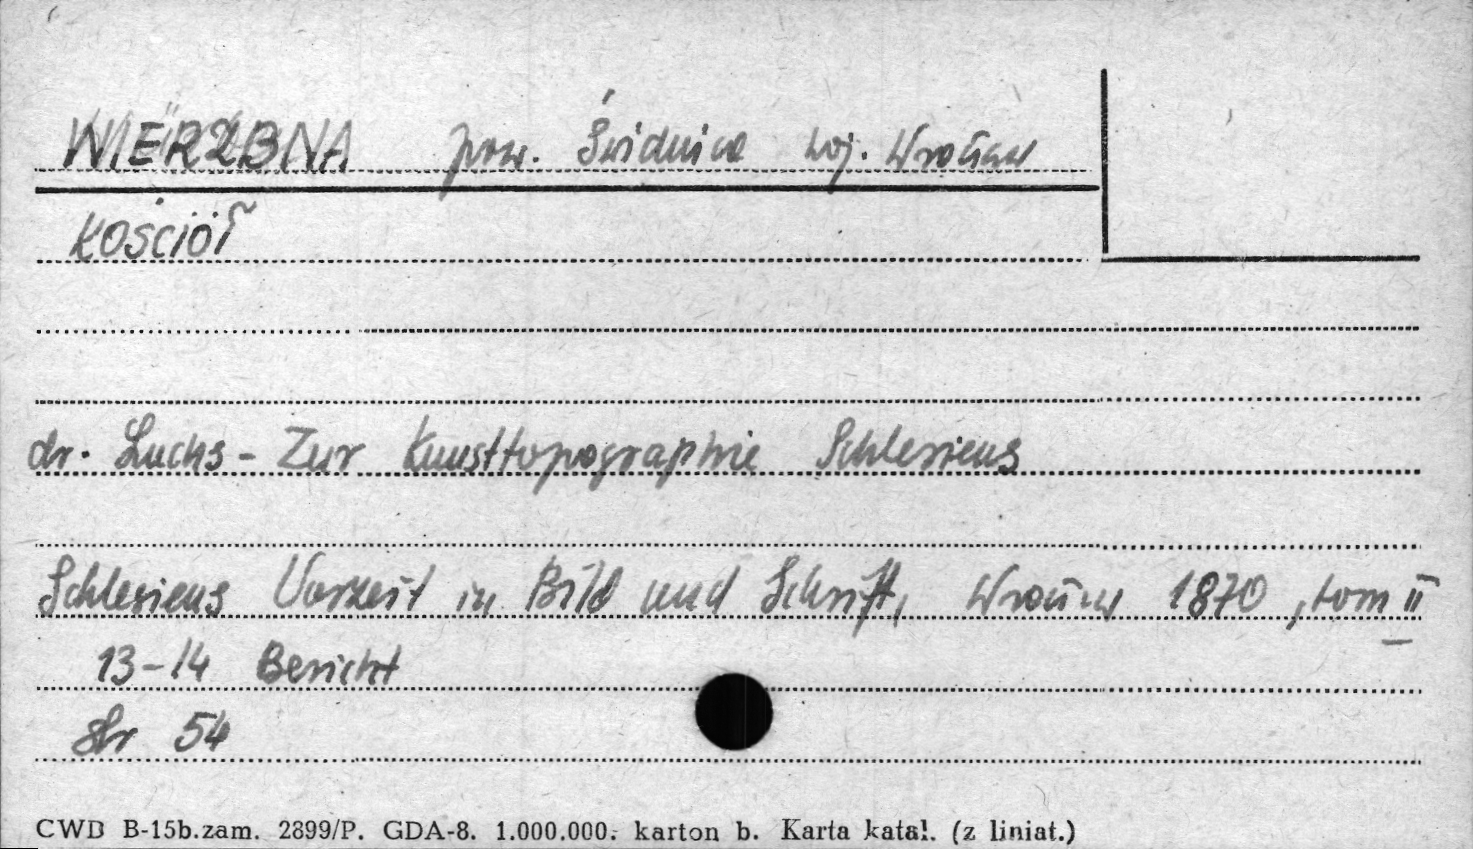 WIERZBNA pow. Świdnica woj. Wrocław
KOŚCIÓŁ
dr. Luchs - Zur Kunsttopographie Schlesiens
Schlesiens Vorzeit in Bild und Schrift, Wrocław 1870, tom II
13-14 Bericht
str 54
CWD B-15b.zam. 2899/P. GDA-8. 1.000.000. karton b. Karta katal. (z liniat.)